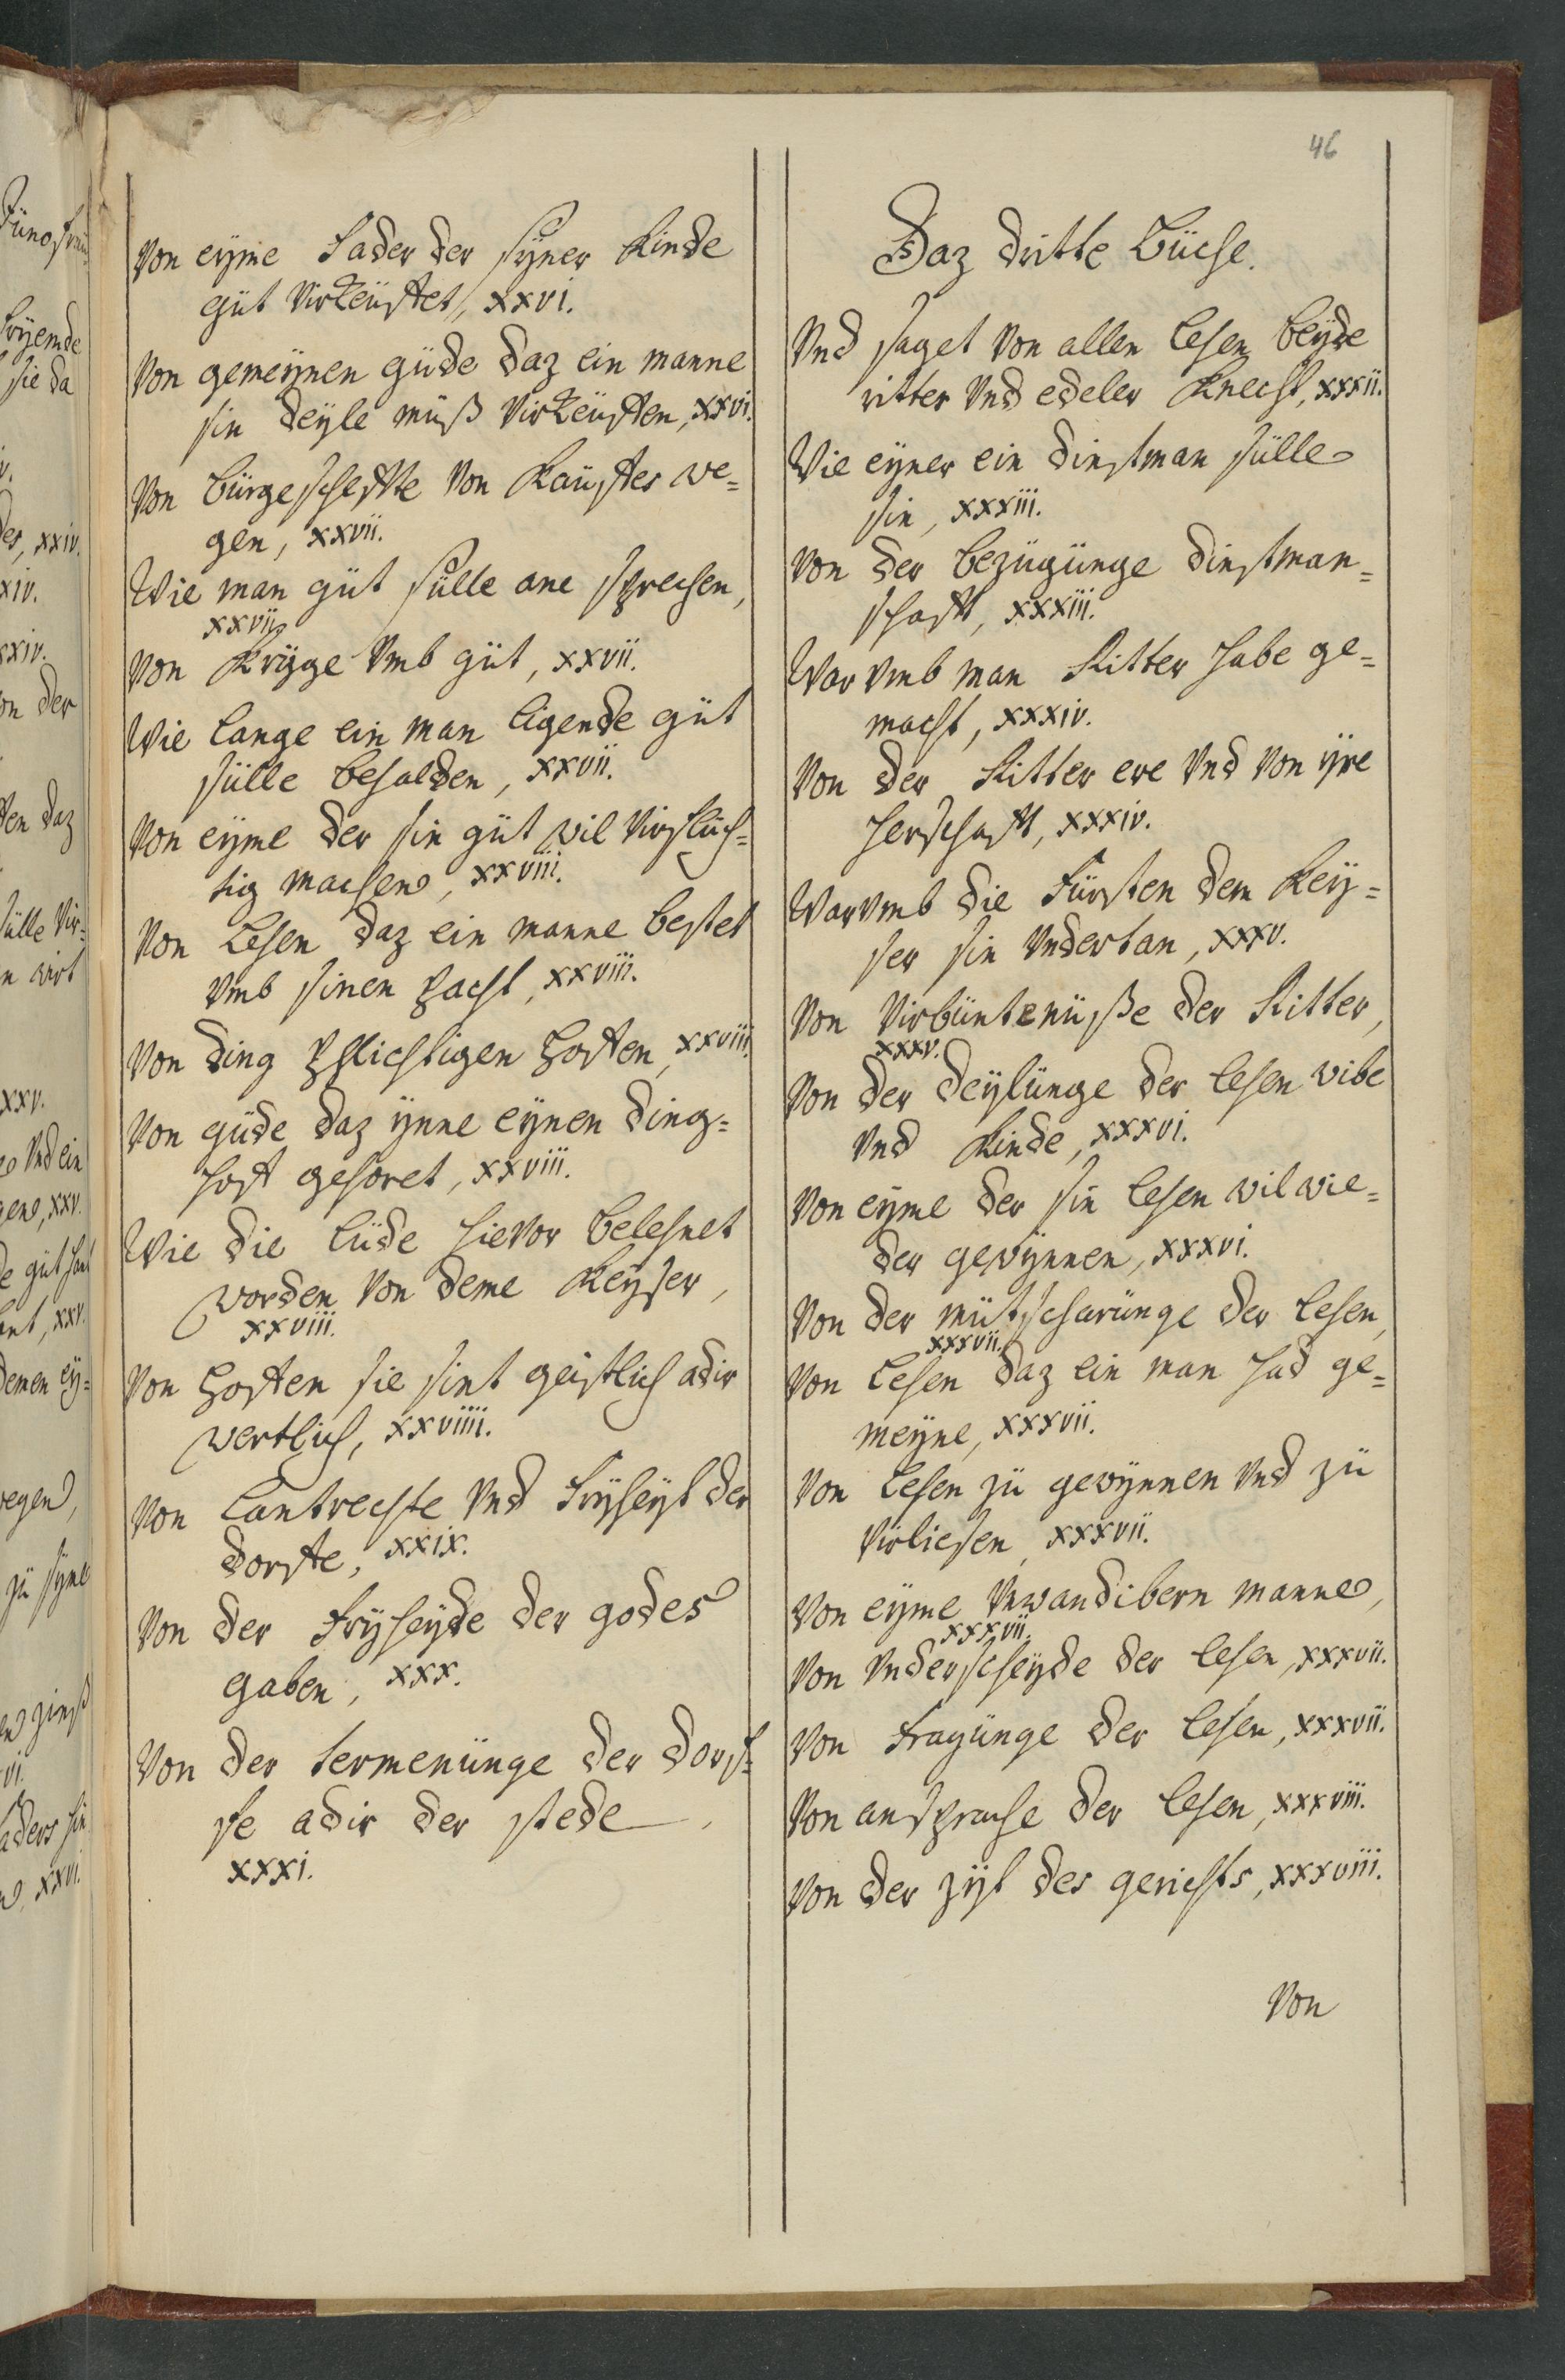 46
Von eyme Fader der syner Kinde
gut virkeuffet, xxvi.
Von gemeynen gude daz ein manne
sin deyle muß virkeuffen, xxvi.
Von burgescheffte von Kauffes we=
gen, xxvii.
Wie man gut sulle ane sprechen,
xxvii
Von Kryge vmb gut, xxvii.
Wie lange ein man ligende gut
sulle behalden, xxvii.
Von eyme der sin gut wil virfluch=
tig machen, xxviii.
Von Lehen daz ein manne bestet
vmb sinen pacht, xxviii.
Von ding pflichtigen Hoffen, xxviii.
Von gude daz ynne eynen ding=
hoff gehoret, xxviii.
Wie die lude hievor belehnet
worden von deme Keyser,
xxviii.
Von Hoffen sie sint geistlich adir
wertlich, xxviiii.
Von Lantrechte vnd Fryheyt der
dorffe, xxix.
Von der Fryheyde der godes
gaben, xxx.
Von der termenunge der dorf=
fe adir der stede,
xxxi.
Daz dritte Buche.
Vnd saget von allen lehen beyde
ritter vnd edeler Knecht, xxxii.
Wie eyner ein dinstman sulle
sin, xxxiii.
Von der bezugunge dinstman=
schafft, xxxiii.
War vmb man Ritter habe ge=
macht, xxxiv.
Von der Ritter ere vnd von yre
herschafft, xxxiv.
Warvmb die Fursten dem Key=
ser sin vndertan, xxxv.
Von virbuntenuße der Ritter,
xxxv.
Von der deylunge der lehen wibe
vnd Kinde, xxxvi.
Von eyme der sin lehen wil wie=
der gewynnen, xxxvi.
Von der mutscharunge der lehen,
xxxvii.
Von Lehen daz ein man had ge=
meyne, xxxvii.
Von Lehen zu gewynnen vnd zu
virliesen, xxxvii.
Von eyme vnwandibern manne,
xxxvii.
Von vnderscheyde der lehen, xxxvii.
Von fragunge der lehen, xxxvii.
Von ansprache der lehen, xxxviii.
Von der zyt des gerichts, xxxviii.
Von